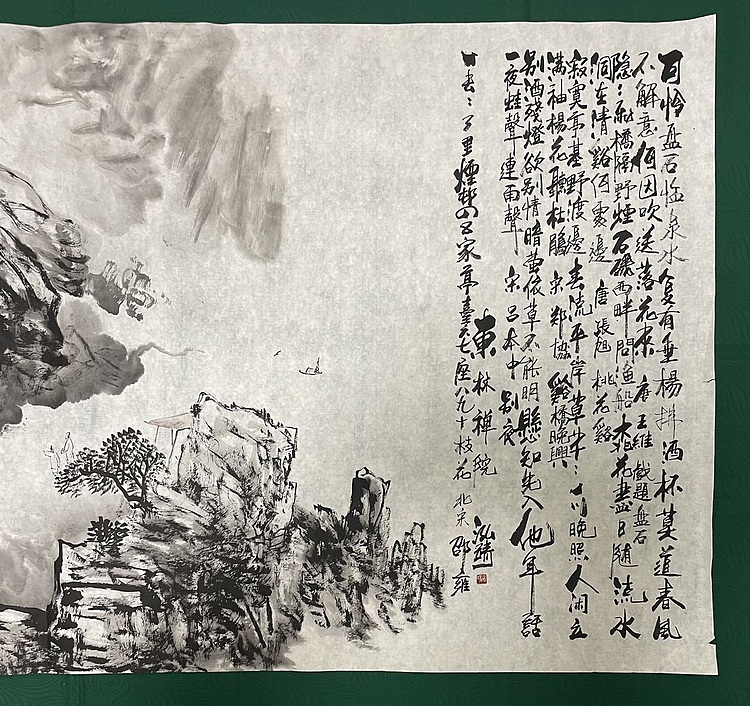 可怜盘石临泉水復有垂楊拂酒杯莫道春風
不解意何因吹送落花來 唐王維 戲題盘石
隐〻飛橋隔野煙石磯西畔問漁船桃花盡日随流水
洞在清谿何處邊 唐張旭 桃花谿
寂寞亭基野渡邊春流平岸草芊〻一川晚照人闲立
满袖楊花聽杜鵑 宋郑協 谿橋晚興
别酒殘燈欲别情暗萤依草不能明懸知先入他年話
一夜蛙聲連雨聲 宋吕本中 别夜
一去二三里煙邨四五家亭臺六七座八九十枝花 北宋邵雍
東林禅院